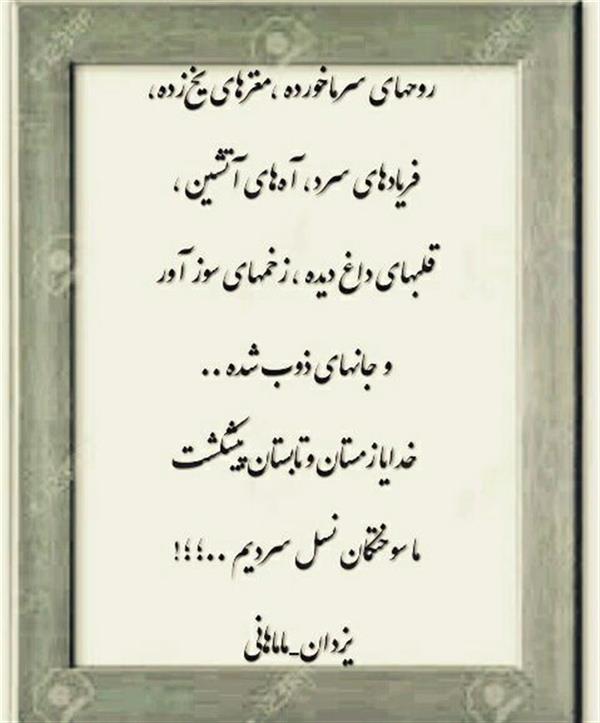 روحهای سرماخورده ،مغزهای یخ‌زده،
فریادهای سرد، آه‌های آتشین ،
قلبهای داغ دیده ، زخمهای سوز آور
و جانهای ذوب شده ..
خدایا زمستان و تابستان پیشکشت
ما سوختگان نسل سردیم ..؛؛!
یزدان_ماماهانی